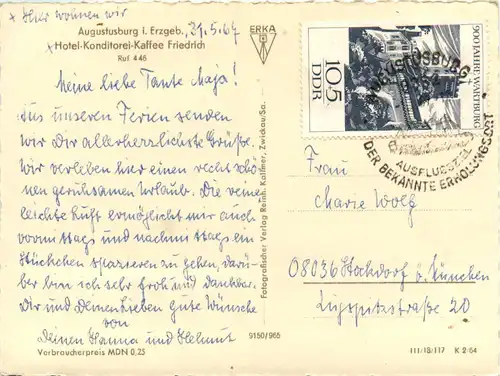 x Hier wohnen wir
Augustusburg i. Erzgeb. 21.5.67
x Hotel-Konditorei-Kaffee Friedrich
Ruf 446
ERKA
Meine liebe Tante Maja!
Aus unseren Ferien senden
wir Dir allerherzlichste Grüße.
Wir verleben hier einen recht schö-
nen geruhsamen Urlaub. Die reine
leichte Luft ermöglicht mir auch
vormittags und nachmittags ein
Stückchen spazieren zu gehen, darü-
ber bin ich sehr froh und dankbar.
Dir und Deinen Lieben gute Wünsche
von
Deinen Hanna und Helmut
Verbraucherpreis MDN 0,25
9150/965
Fotografischer Verlag Reinh. Kallmer, Zwickau/Sa.
900 JAHRE WARTBURG
10+5
DDR
AUGUSTUSBURG
AUSFLUGSZIEL
DER BEKANNTE ERHOLUNGSORT
Frau
Marie Wolf
08036 Stockdorf b. München
Zugspitzstraße 20
III/18/117 K 2/64